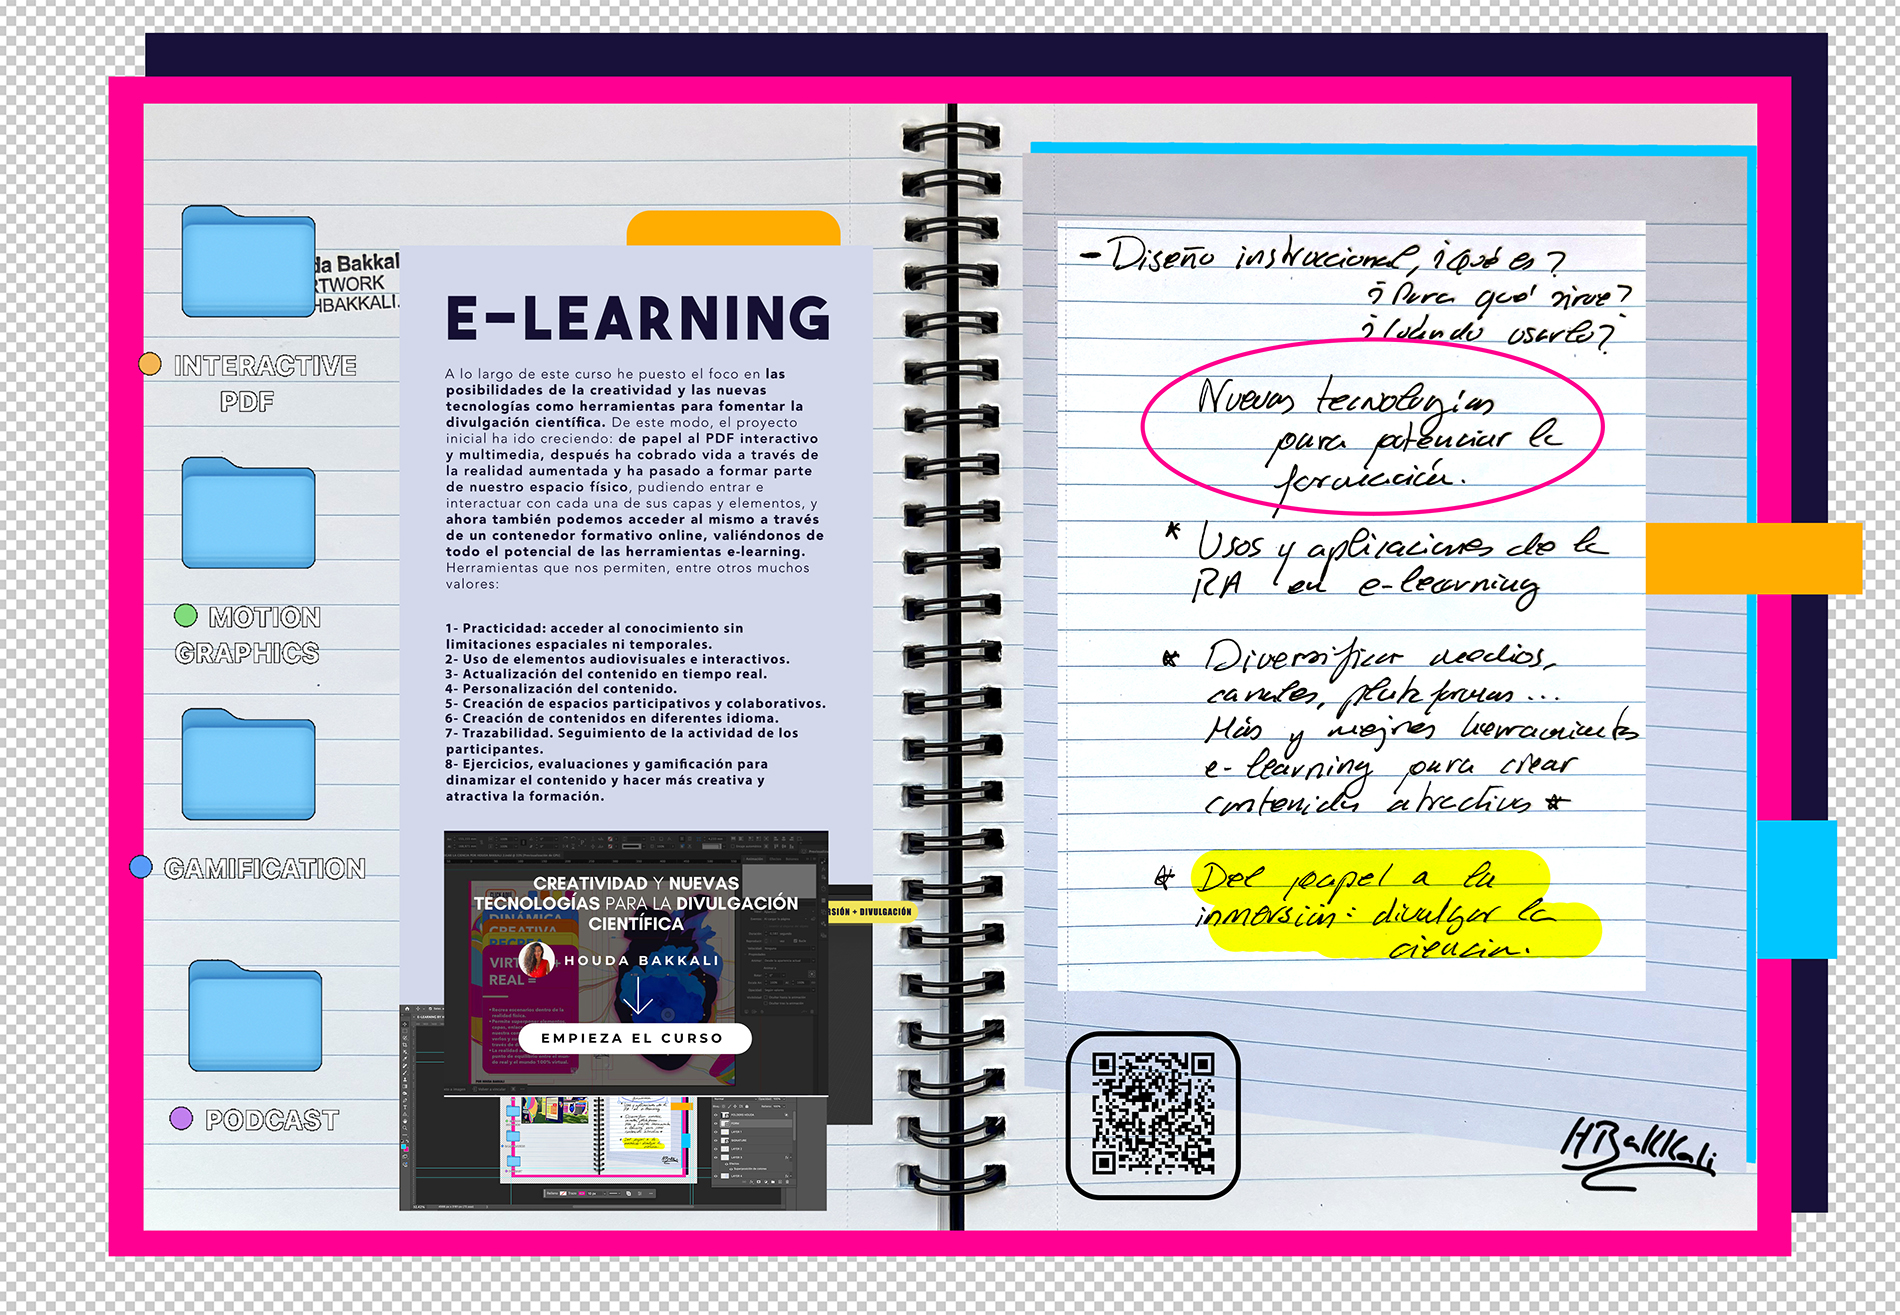 da Bakkal
RTWORK
HBAKKALI.
INTERACTIVE
PDF
MOTION
GRAPHICS
GAMIFICATION
PODCAST
E-LEARNING
A lo largo de este curso he puesto el foco en las
posibilidades de la creatividad y las nuevas
tecnologías como herramientas para fomentar la
divulgación científica. De este modo, el proyecto
inicial ha ido creciendo: de papel al PDF interactivo
y multimedia, después ha cobrado vida a través de
la realidad aumentada y ha pasado a formar parte
de nuestro espacio físico, pudiendo entrar e
interactuar con cada una de sus capas y elementos, y
ahora también podemos acceder al mismo a través
de un contenedor formativo online, valiéndonos de
todo el potencial de las herramientas e-learning.
Herramientas que nos permiten, entre otros muchos
valores:
1- Practicidad: acceder al conocimiento sin
limitaciones espaciales ni temporales.
2- Uso de elementos audiovisuales e interactivos.
3- Actualización del contenido en tiempo real.
4- Personalización del contenido.
5- Creación de espacios participativos y colaborativos.
6- Creación de contenidos en diferentes idioma.
7- Trazabilidad. Seguimiento de la actividad de los
participantes.
8- Ejercicios, evaluaciones y gamificación para
dinamizar el contenido y hacer más creativa y
atractiva la formación.
CREATIVIDAD Y NUEVAS
TECNOLOGÍAS PARA LA DIVULGACIÓN
CIENTÍFICA
HOUDA BAKKALI
EMPIEZA EL CURSO
RSIÓN + DIVULGACIÓN
DINÁMICA
CREATIVA
VIRT
REAL =
- Diseño instruccional, ¿Qué es?
¿Para qué sirve?
¿Cuándo usarlo?
Nuevas tecnologías
para potenciar la
formación.
* Usos y aplicaciones de la
RA en e-learning
* Diversificar medios,
canales, plataformas...
Más y mejores herramientas
e-learning para crear
contenidos atractivos *
* Del papel a la
inmersión: divulgar la
ciencia.
HBaKKali